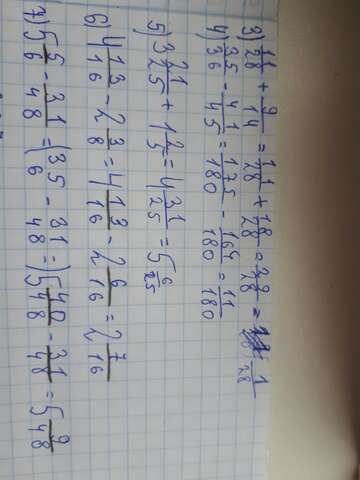 3) 11/28 + 9/14 = 11/28 + 18/28 = 29/28 = 1 1/28
4) 35/36 - 41/45 = 175/180 - 164/180 = 11/180
5) 3 21/25 + 1 2/5 = 4 31/25 = 5 6/25
6) 4 13/16 - 2 3/8 = 4 13/16 - 2 6/16 = 2 7/16
7) 5 5/6 - 31/48 = (35/6 - 31/48 =) 5 40/48 - 31/48 = 5 9/48